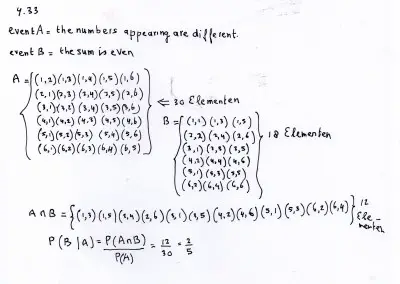 4.33
event A = the numbers appearing are different.
event B = the sum is even
A = {(1,2)(1,3)(1,4)(1,5)(1,6)
(2,1)(2,3)(2,4)(2,5)(2,6)
(3,1)(3,2)(3,4)(3,5)(3,6)
(4,1)(4,2)(4,3)(4,5)(4,6)
(5,1)(5,2)(5,3)(5,4)(5,6)
(6,1)(6,2)(6,3)(6,4)(6,5)} ⇐ 30 Elementen
B = {(1,1)(1,3)(1,5)
(2,2)(2,4)(2,6)
(3,1)(3,3)(3,5)
(4,2)(4,4)(4,6)
(5,1)(5,3)(5,5)
(6,2)(6,4)(6,6)} 18 Elementen
A∩B = {(1,3)(1,5)(2,4)(2,6)(3,1)(3,5)(4,2)(4,6)(5,1)(5,3)(6,2)(6,4)} 12 Ele-menten
P(B|A) = P(A∩B)/P(A) = 12/30 = 2/5